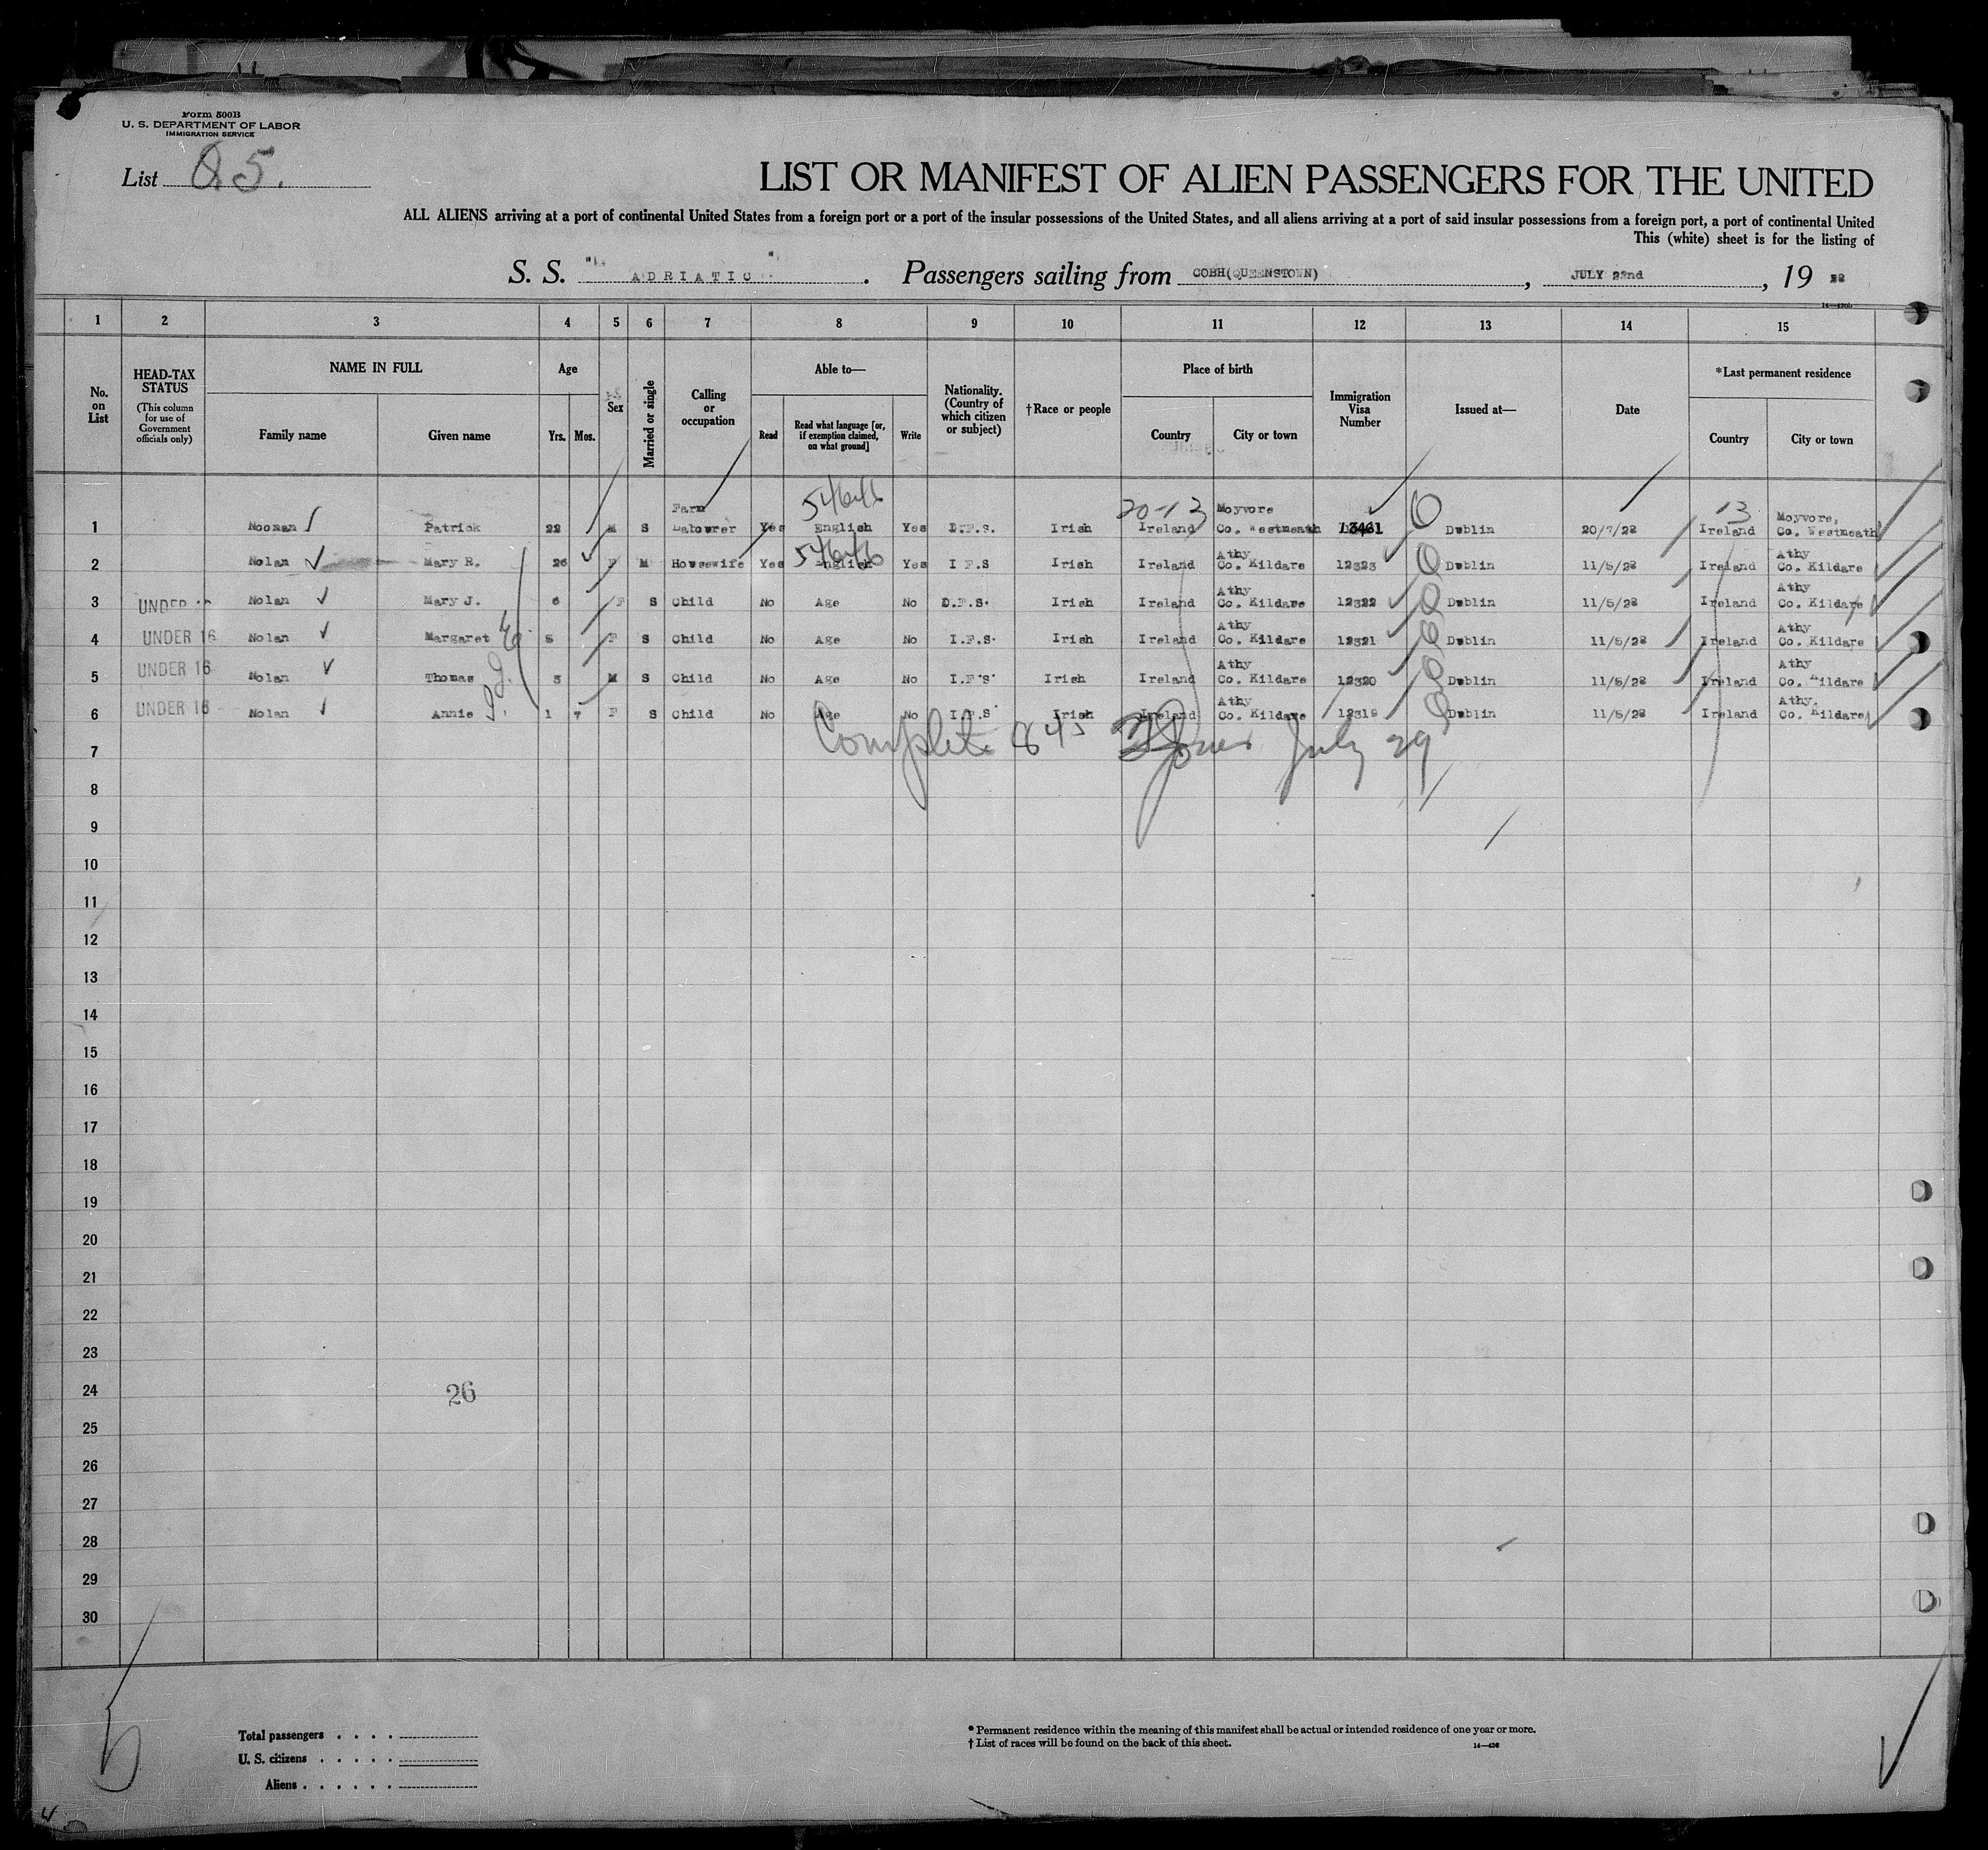 Form 500B
U. S. DEPARTMENT OF LABOR
IMMIGRATION SERVICE
List 85.
LIST OR MANIFEST OF ALIEN PASSENGERS FOR THE UNITED
ALL ALIENS arriving at a port of continental United States from a foreign port or a port of the insular possessions of the United States, and all aliens arriving at a port of said insular possessions from a foreign port, a port of continental United
This (white) sheet is for the listing of
S. S. "ADRIATIC". Passengers sailing from COBH(QUEENSTOWN), JULY 22nd, 19 28
1 2 3 4 5 6 7 8 9 10 11 12 13 14 15
No. on List
HEAD-TAX STATUS
(This column for use of Government officials only)
NAME IN FULL
Family name Given name
Age
Yrs. Mos.
Sex
Married or single
Calling or occupation
Able to—
Read
Read what language [or, if exemption claimed, on what ground]
Write
Nationality. (Country of which citizen or subject)
†Race or people
Place of birth
Country City or town
Immigration Visa Number
Issued at—
Date
*Last permanent residence
Country City or town
54646 20-13 13
1 Noonan Patrick 22 M S Farm Labourer Yes English Yes I.F.S. Irish Ireland Moyvore Co. Westmeath 13461 Dublin 20/7/28 Ireland Moyvore, Co. Westmeath
54646
2 Nolan Mary R. 26 F M Housewife Yes English Yes I F.S Irish Ireland Athy Co. Kildare 12323 Dublin 11/5/28 Ireland Athy Co. Kildare
3 UNDER 16 Nolan Mary J. 6 F S Child No Age No D.F.S. Irish Ireland Athy Co. Kildare 12322 Dublin 11/5/28 Ireland Athy Co. Kildare
4 UNDER 16 Nolan Margaret E. 5 F S Child No Age No I.F.S. Irish Ireland Athy Co. Kildare 12321 Dublin 11/5/28 Ireland Athy Co. Kildare
5 UNDER 16 Nolan Thomas J. 3 M S Child No Age No I.F.S. Irish Ireland Athy Co. Kildare 12320 Dublin 11/5/28 Ireland Athy Co. Kildare
6 UNDER 16 Nolan Annie 1 7 F S Child No Age No I.F.S Irish Ireland Athy Co. Kildare 12319 Dublin 11/5/28 Ireland Athy. Co. Kildare
7 Complete 845 July 29
8
9
10
11
12
13
14
15
16
17
18
19
20
21
22
23
24 26
25
26
27
28
29
30
Total passengers . . . .
U. S. citizens . . . . .
Aliens . . . . . .
* Permanent residence within the meaning of this manifest shall be actual or intended residence of one year or more.
† List of races will be found on the back of this sheet.